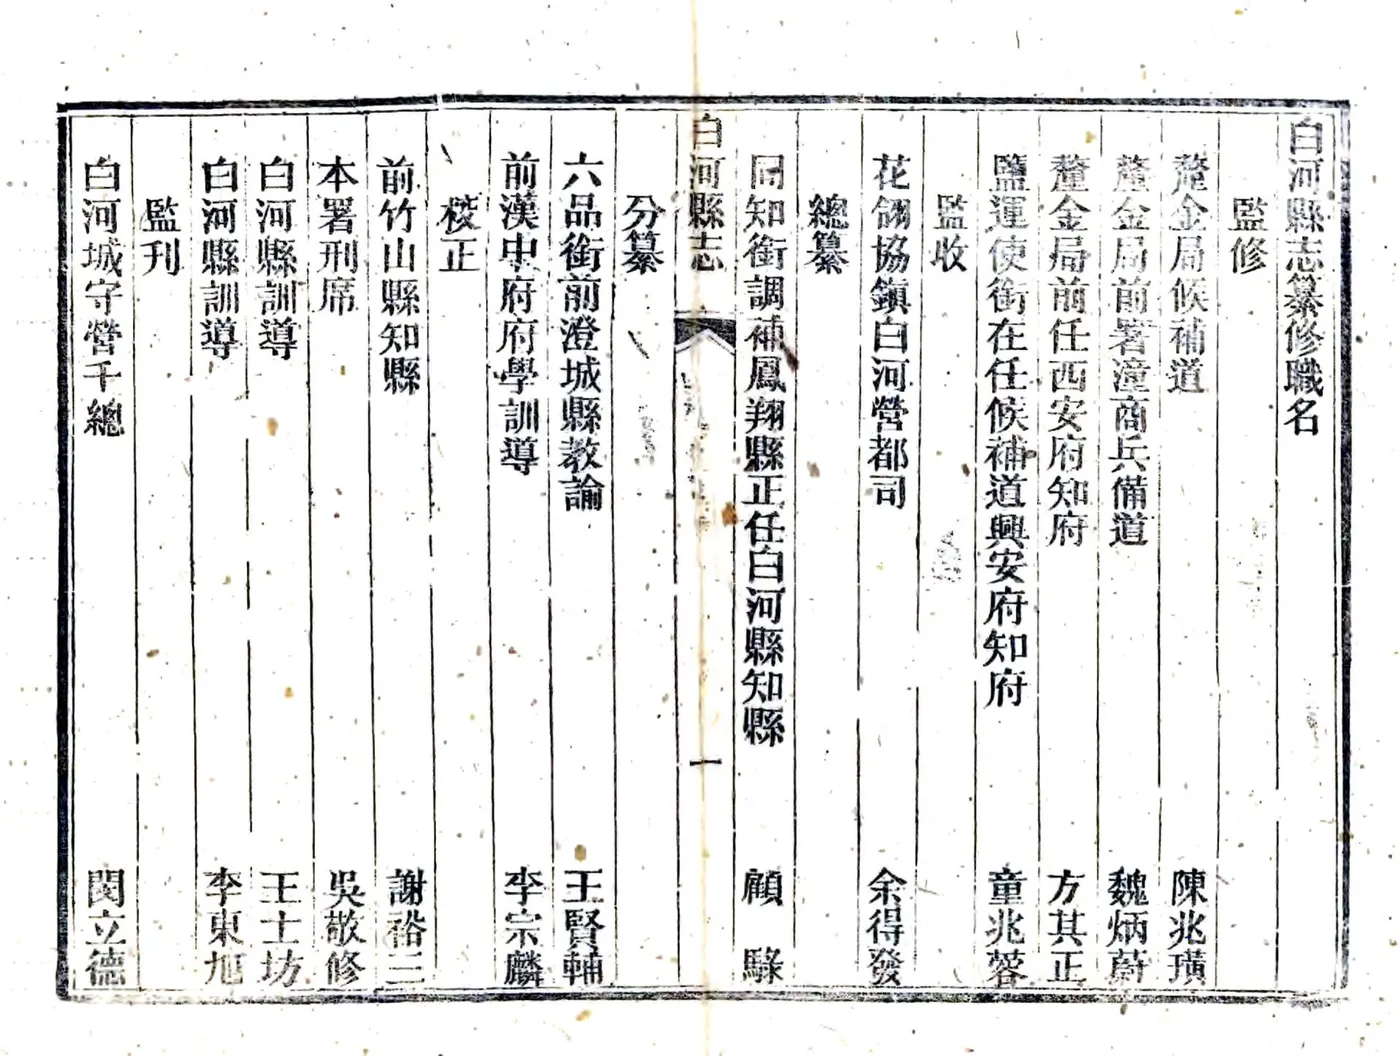 白河縣志纂修職名
監修
釐金局候補道 陳兆璜
釐金局前署潼商兵備道 魏炳蔚
釐金局前任西安府知府 方其正
鹽運使銜在任候補道興安府知府 童兆蓉
監收
花翎協鎮白河營都司 余得發
總纂
同知銜調補鳳翔縣正任白河縣知縣 顧騄
白河縣志 一
分纂
六品銜前澄城縣教諭 王賢輔
前漢中府府學訓導 李宗麟
校正
前竹山縣知縣 謝裕三
本署刑席 吳敬修
白河縣訓導 王士坊
白河縣訓導 李東旭
監刊
白河城守營千總 閔立德